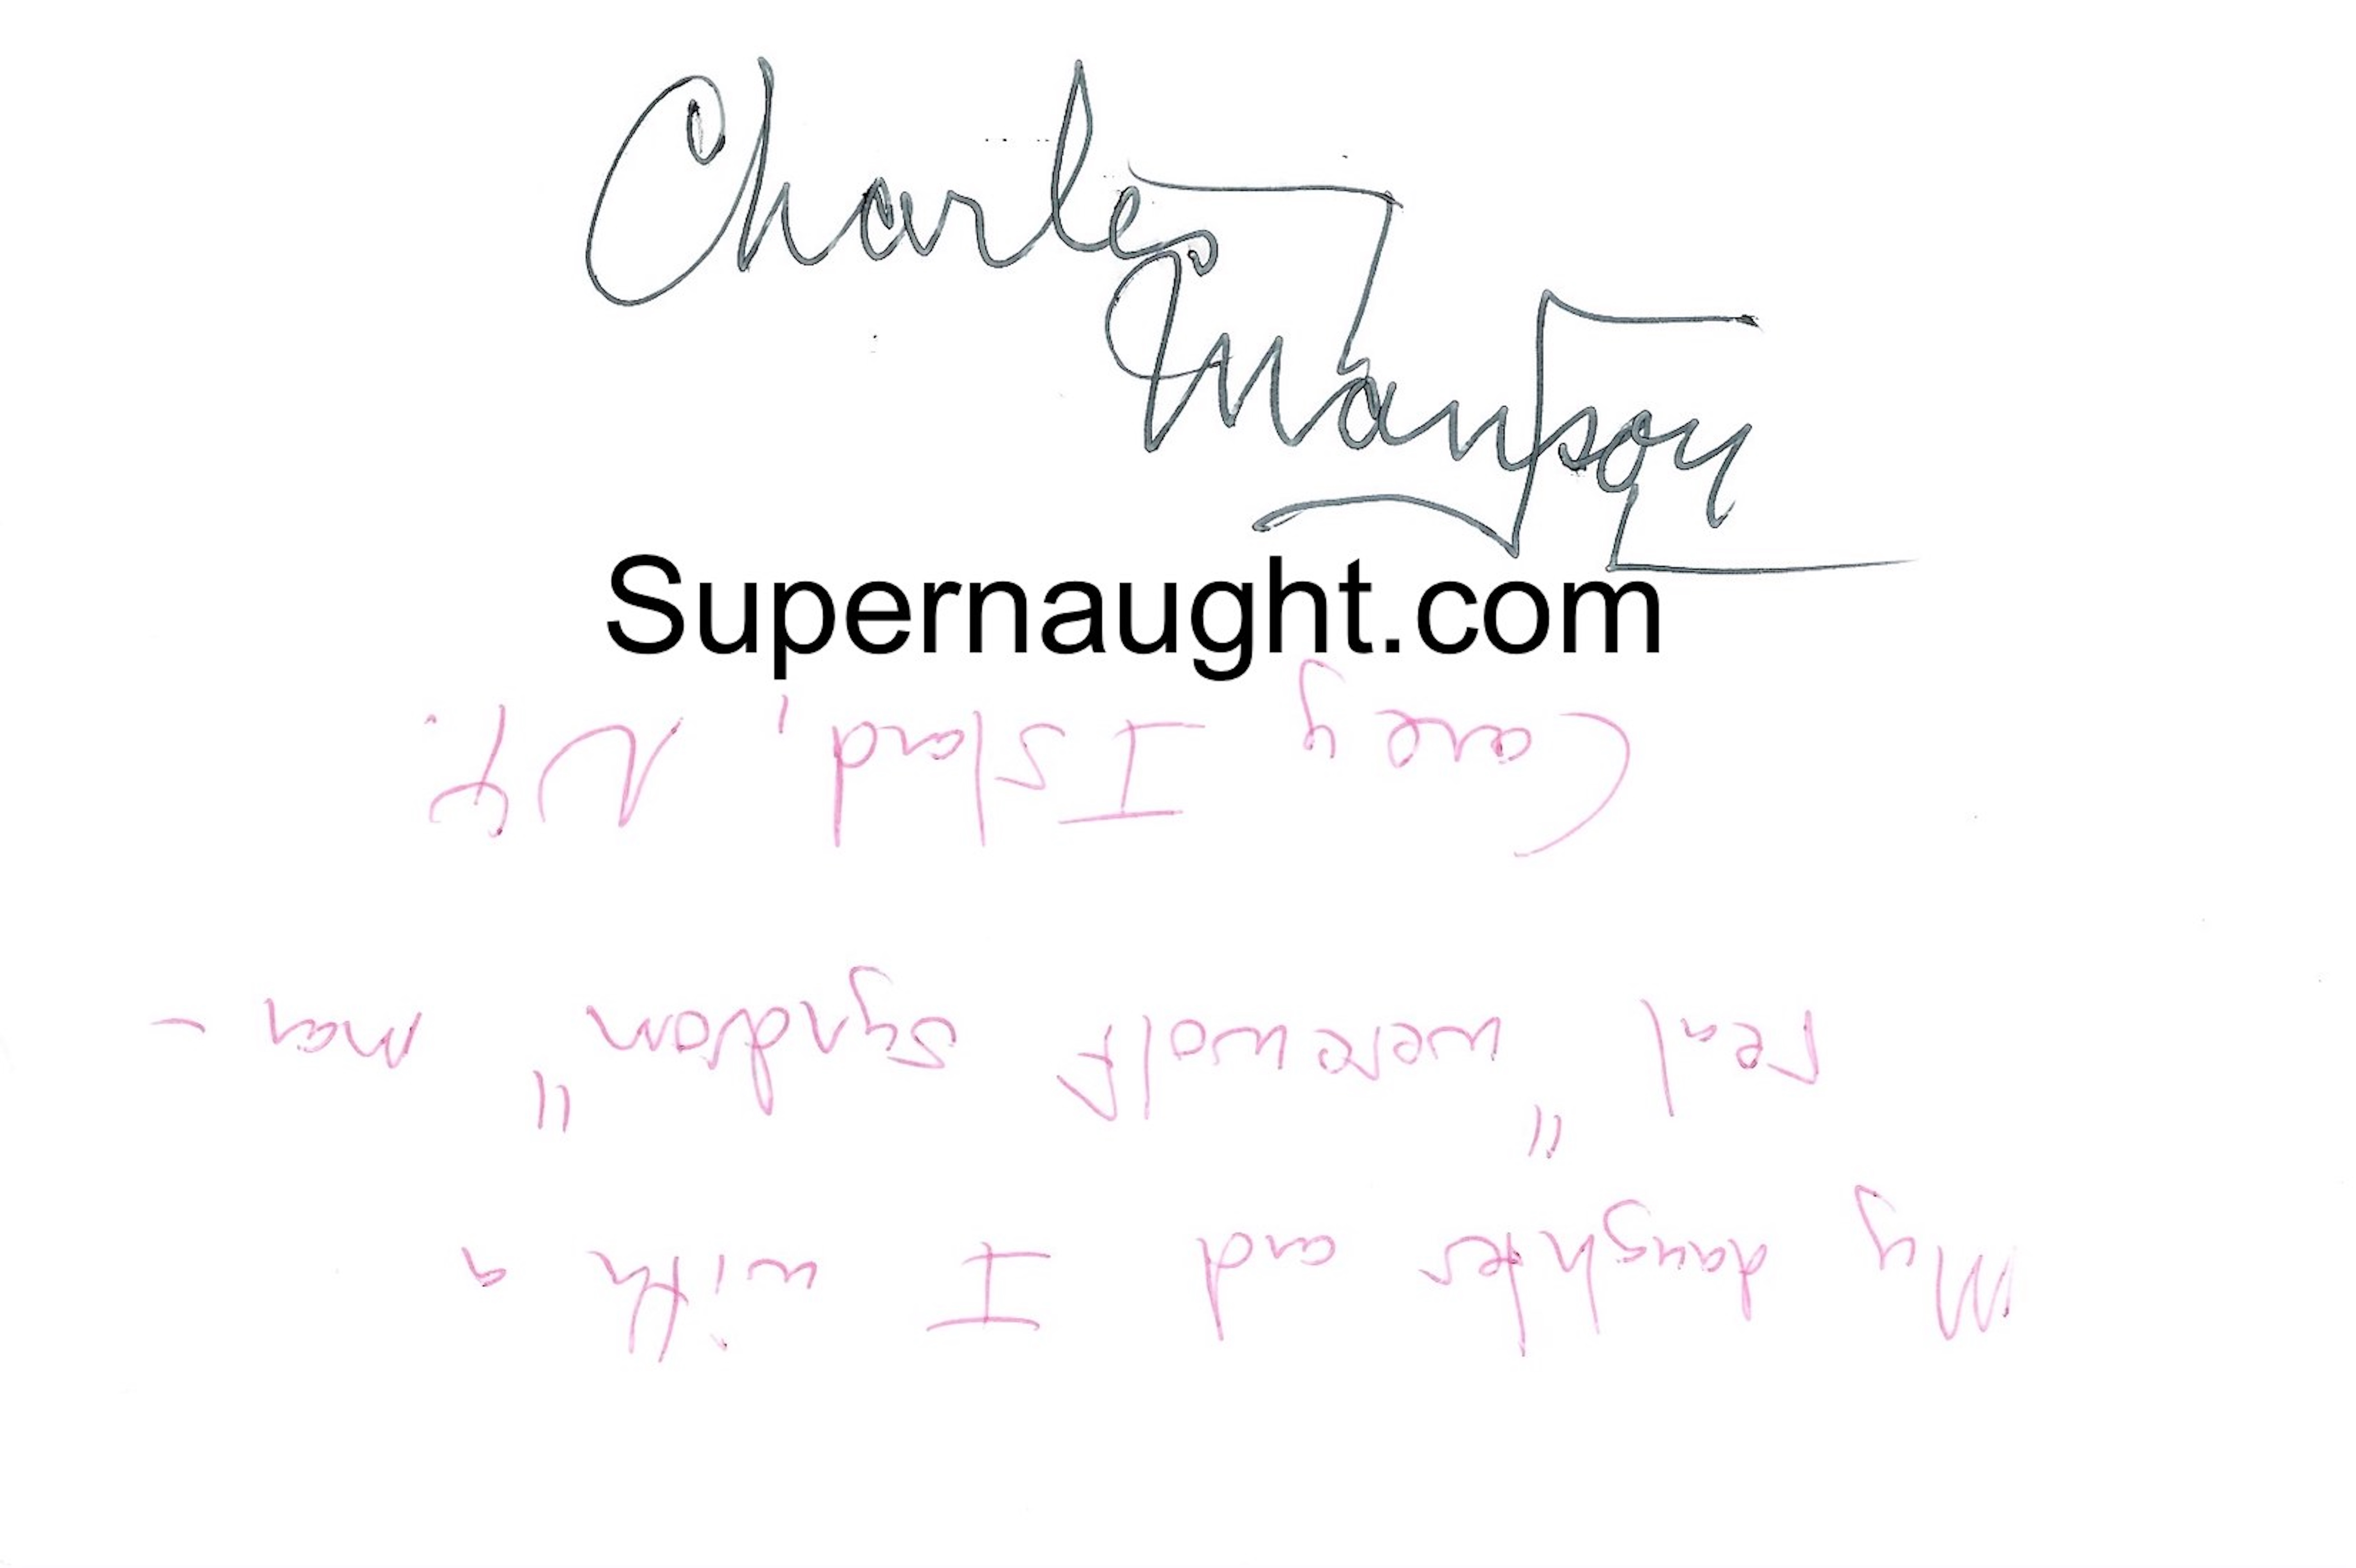 Charles
Manson
Supernaught.com
My daughter and I with a
real "werewolf syndrom" man -
Coney Island, N.Y.